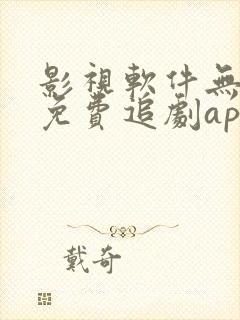 影視軟件無
免費追劇ap
戴奇